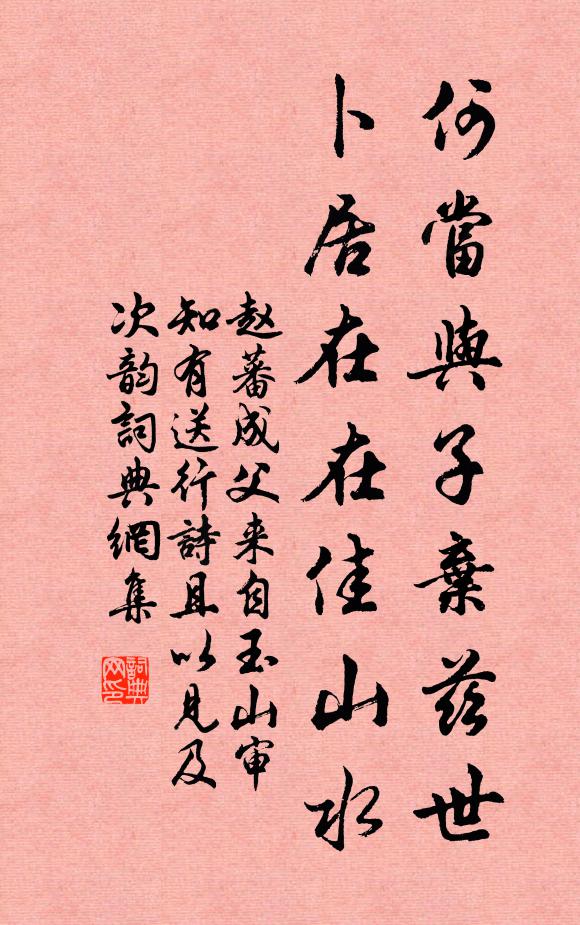 何當與子棄茲世
卜居在在佳山水
赵蕃成父来自玉山审
知有送行詩且以见及
次韵詞典網集
詞典
网印